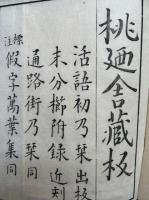 桃廼舎藏板
活語初乃栞 出板
末分櫛附録 近刻
通路街乃栞 同
標注 假字萬葉集 同